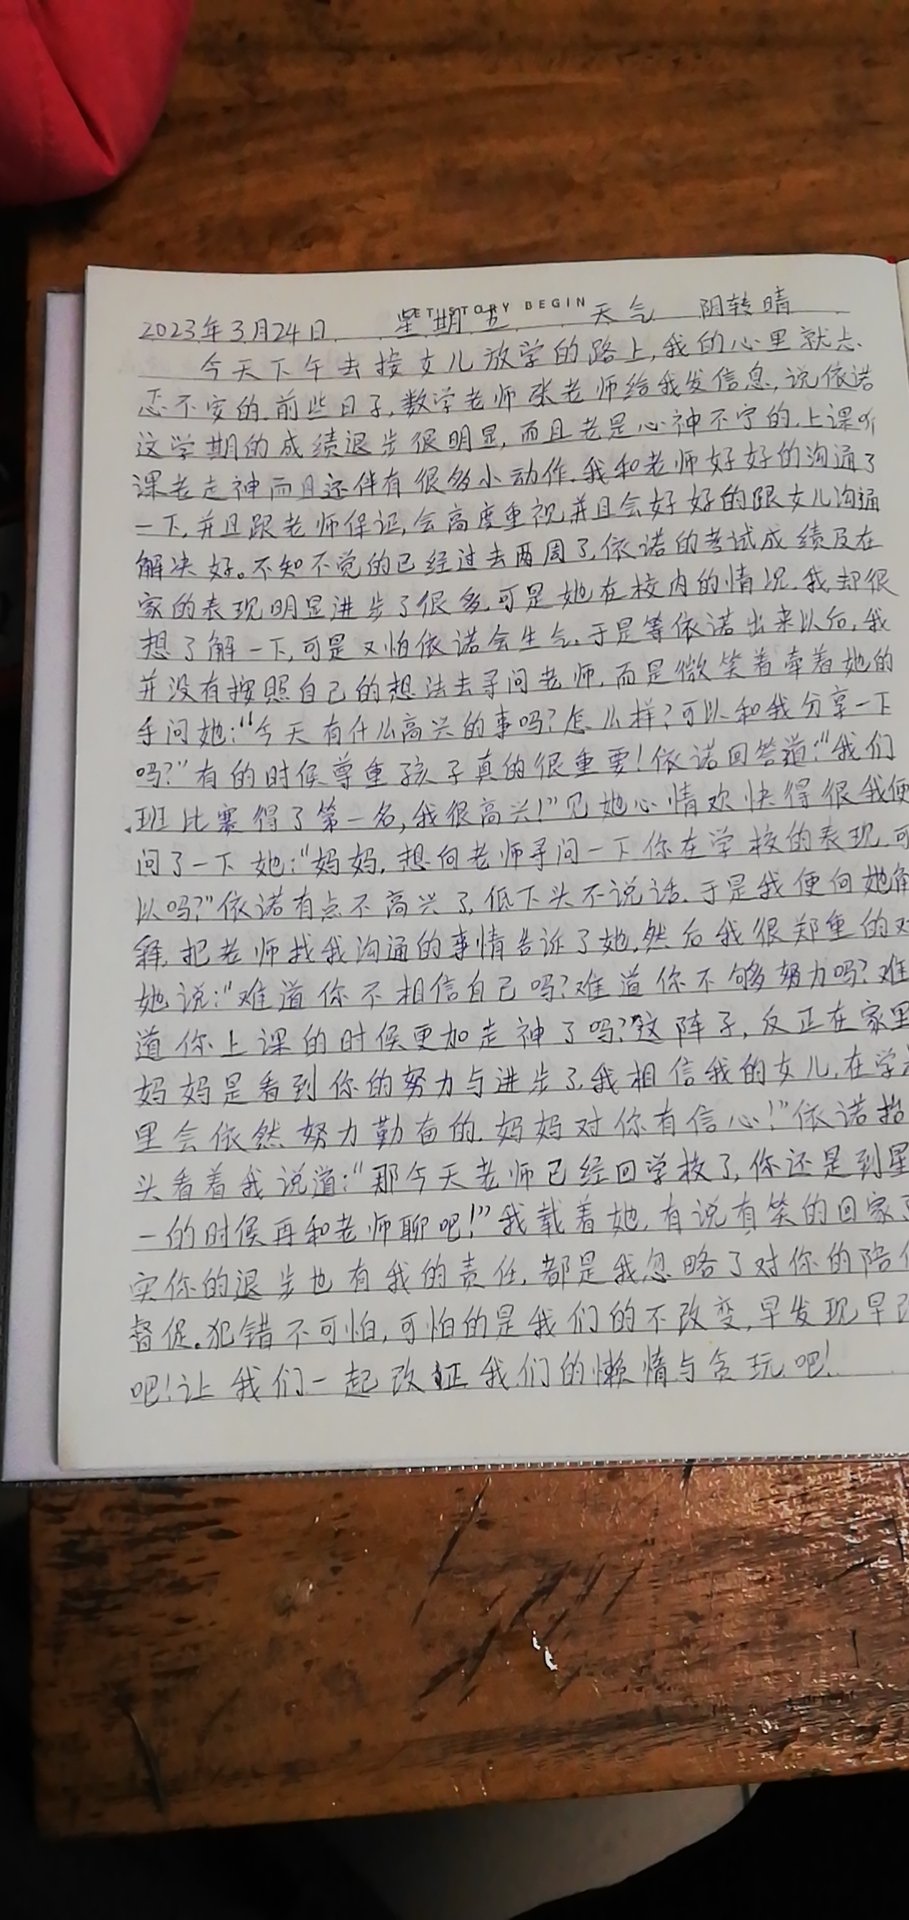 LET STORY BEGIN
2023年3月24日 星期五 天气 阴转晴
今天下午去接女儿放学的路上,我的心里就忐
忑不安的,前些日子,数学老师张老师给我发信息,说依诺
这学期的成绩退步很明显,而且老是心神不宁的,上课听
课老走神而且还伴有很多小动作.我和老师好好的沟通了
一下,并且跟老师保证,会高度重视,并且会好好的跟女儿沟通
解决好。不知不觉的已经过去两周了,依诺的考试成绩及在
家的表现明显进步了很多,可是她在校内的情况,我却很
想了解一下,可是又怕依诺会生气.于是等依诺出来以后,我
并没有按照自己的想法去寻问老师,而是微笑着牵着她的
手问她:“今天有什么高兴的事吗?怎么样?可以和我分享一下
吗?”有的时候尊重孩子真的很重要!依诺回答道:“我们
班比赛得了第一名,我很高兴!”见她心情欢快得很我便
问了一下她:“妈妈,想向老师寻问一下你在学校的表现,可
以吗?”依诺有点不高兴了,低下头不说话.于是我便向她解
释,把老师找我沟通的事情告诉了她,然后我很郑重的对
她说:“难道你不相信自己吗?难道你不够努力吗?难
道你上课的时候更加走神了吗?这阵子,反正在家里
妈妈是看到你的努力与进步了,我相信我的女儿,在学
里会依然努力勤奋的.妈妈对你有信心!”依诺抬
头看着我说道:“那今天老师已经回学校了,你还是到星
一的时候再和老师聊吧!”我载着她,有说有笑的回家
实你的退步也有我的责任,都是我忽略了对你的陪
督促.犯错不可怕,可怕的是我们的不改变,早发现早
吧!让我们一起改证我们的懒惰与贪玩吧!